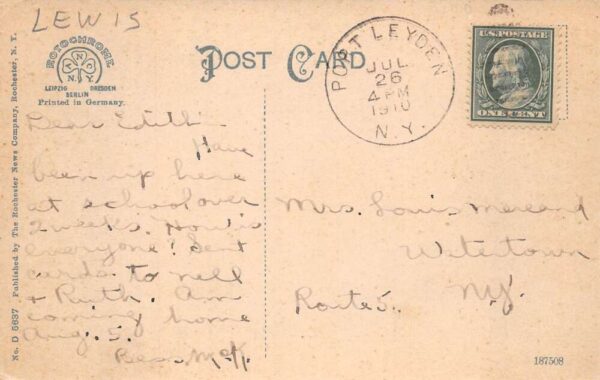 LEWIS
ROTOCHROME
A N C Y
LEIPZIG DRESDEN
BERLIN
Printed in Germany.
POST CARD
PORT LEYDEN
JUL
26
4 PM
1910
N.Y.
U.S. POSTAGE
ONE CENT
Dear Edith
Have
been up here
at school over
2 weeks. How is
everyone? Sent
cards to nell
+ Ruth. Am
coming home
Aug. 5.
Mrs. Louis
Watertown
Route 5. Ny.
No. D 5637 Published by The Rochester News Company, Rochester, N. Y.
187508